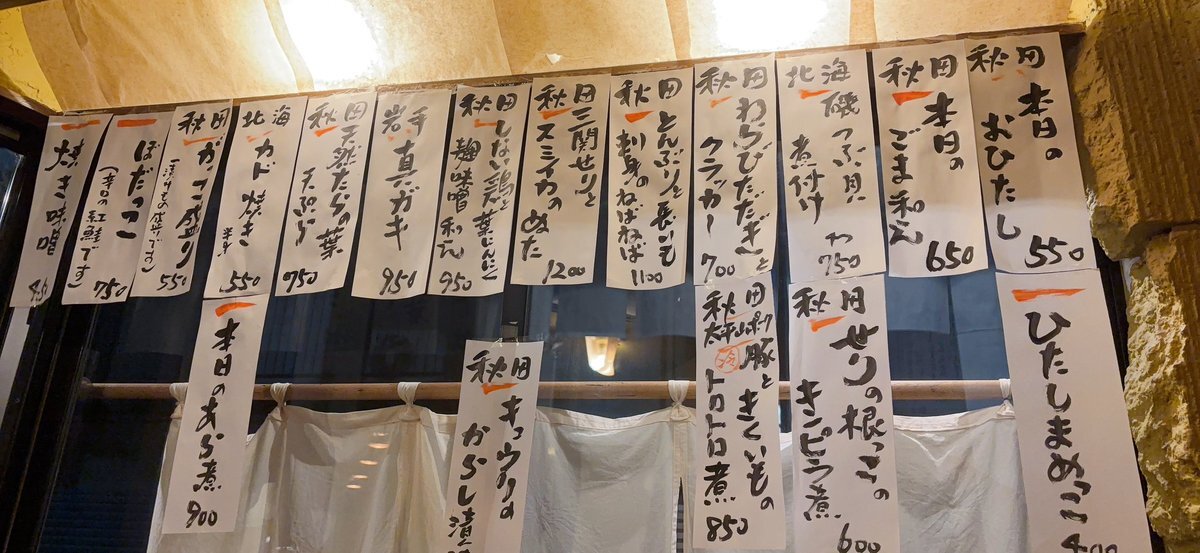 秋田
本日の
おひたし
550
秋田
本日の
ごま和え
650
北海
磯つぶ貝
煮付け
750
秋田
わらびただぎと
クラッカー
700
秋田
とんぶりと長いも
刺身のねばねば
1100
秋田
三関せりと
スミイカのぬた
1200
秋田
しない鶏と葉にんにく
麹味噌和え
950
岩手
真ガキ
950
秋田
天然たらの葉
天ぷら
750
北海
カド焼き
550
秋田
がっこ盛り
(漬けもの盛りです)
550
ぼだっこ
(辛口の紅鮭です)
750
焼き味噌
ひたしまめっこ
400
秋田
せりの根っこの
キンピラ煮
600
秋田
太平山ポーク
豚ときくいもの
トロトロ煮
850
秋田
キュウリの
からし漬
本日のあら煮
900